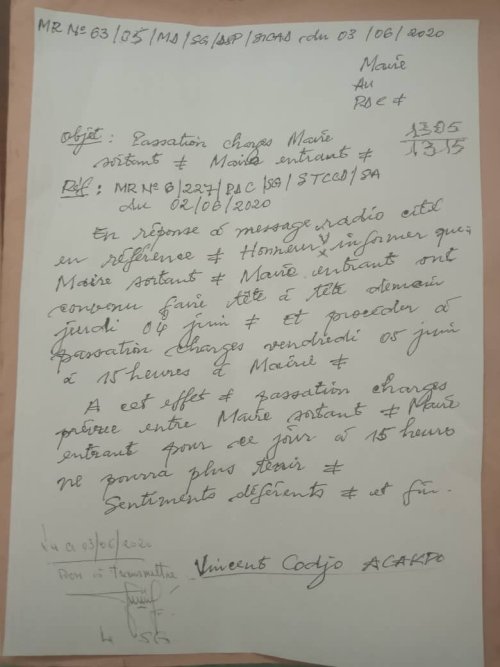 MR N° 63/05/MD/SG/DSP/STCAD du 03/06/2020
Maire
Au
PDC #
Objet : Passation charges Maire
sortant # Maire entrant #
1305
1315
Réf : MR N° 6/227/PDC/SG/STCCD/SA
du 02/06/2020
En réponse à message radio cité
en référence # Honneur V/ informer que
Maire sortant # Maire entrant ont
convenu faire tête à tête demain
jeudi 04 juin # et procéder à
passation charges vendredi 05 juin
à 15 heures à Mairie #
A cet effet # passation charges
prévue entre Maire sortant # Maire
entrant pour ce jour à 15 heures
ne pourra plus tenir #
Sentiments déférents # et fin.
Lu le 03/06/2020
Bon à transmettre
Vincent Codjo ACAKPO
Le SG